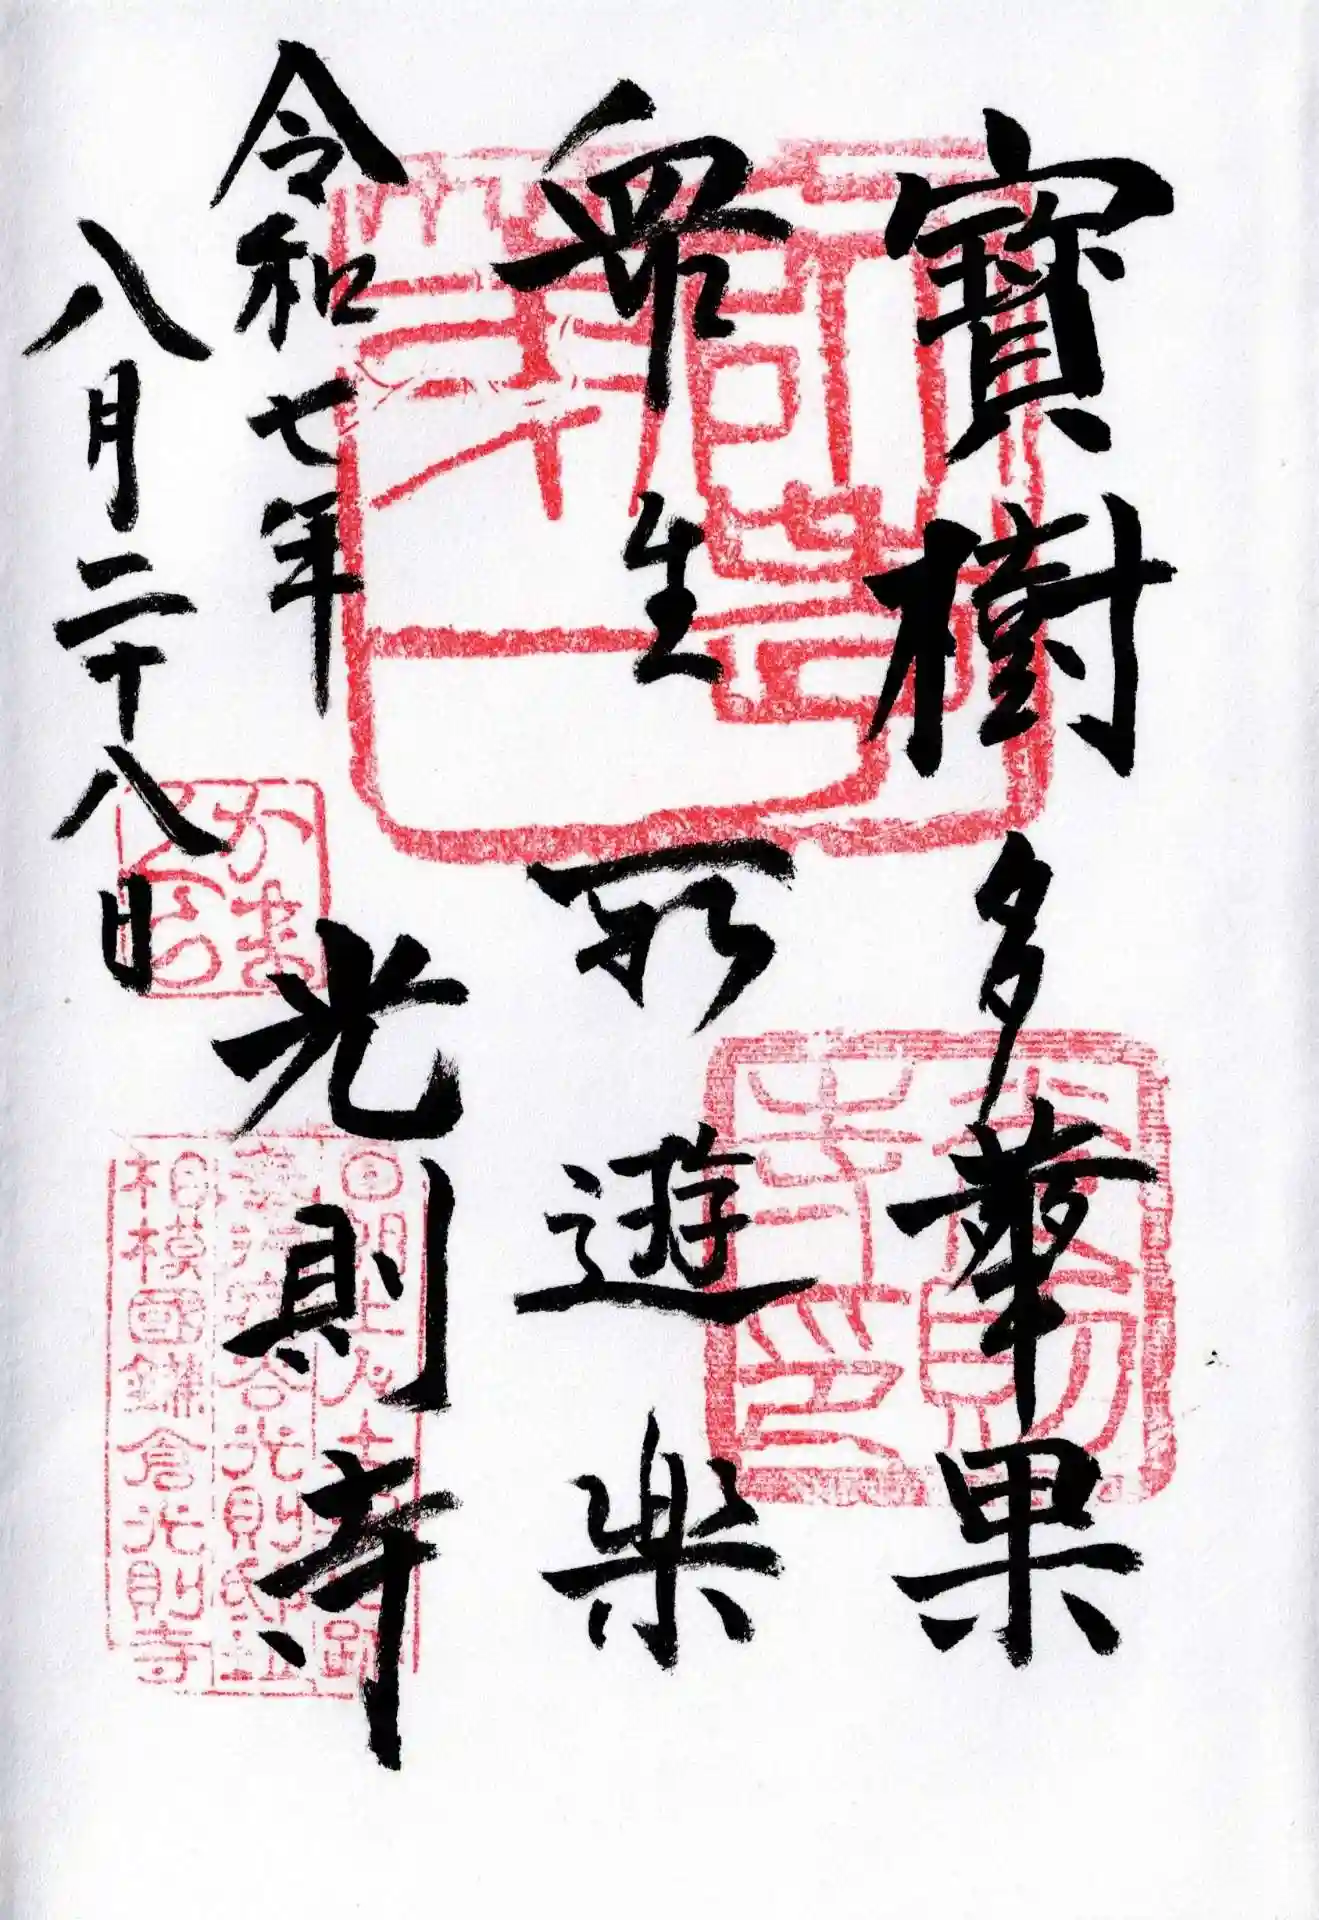 寶樹多華果
衆生所遊楽
令和七年
八月二十八日
光則寺
相模國鎌倉光則寺